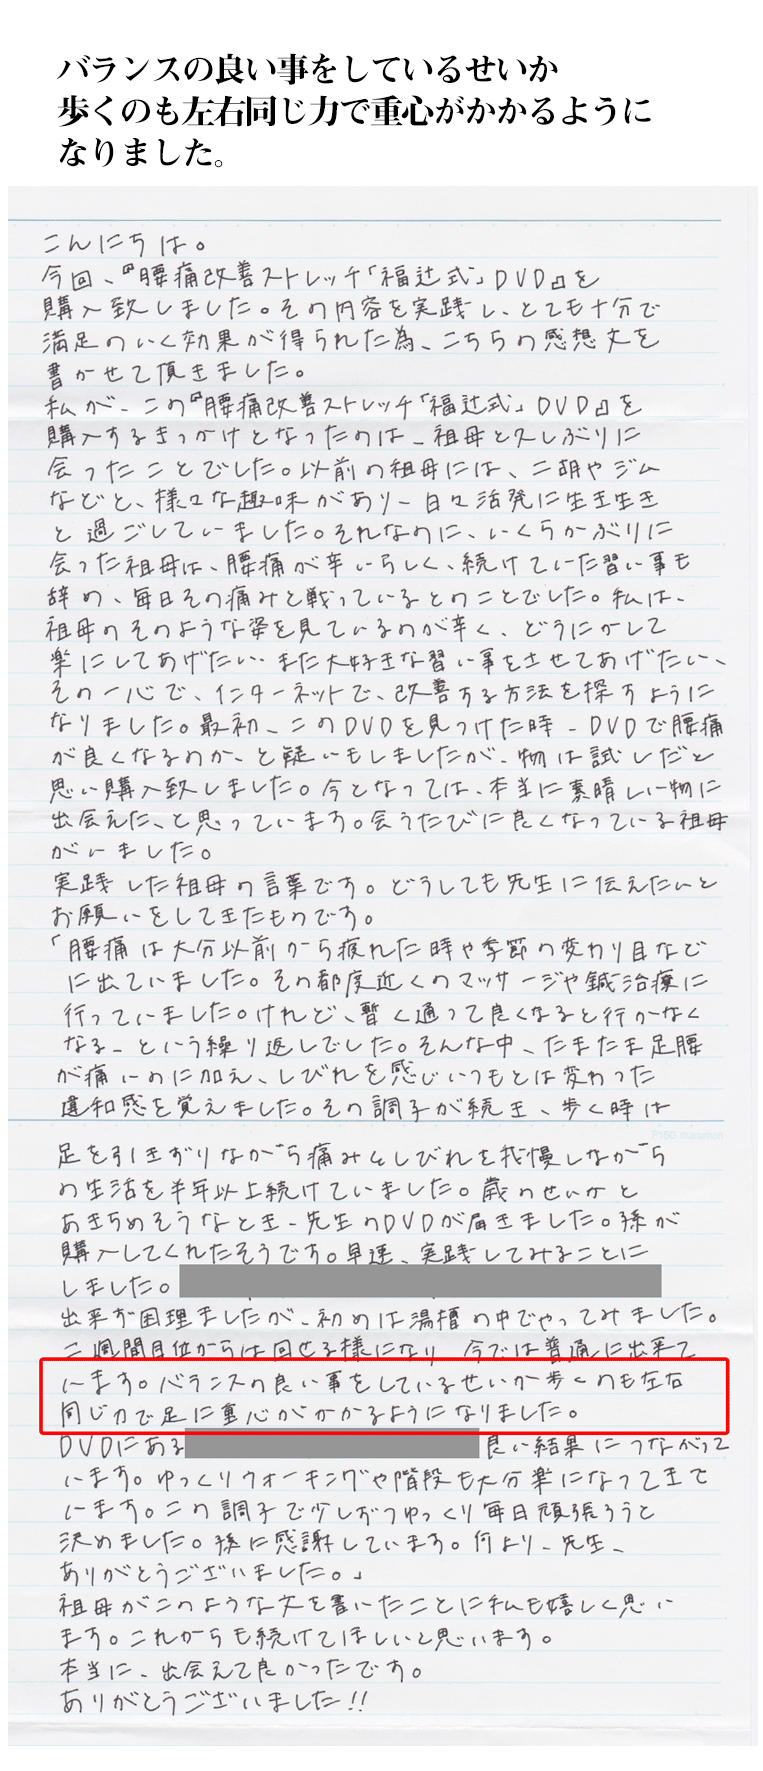 バランスの良い事をしているせいか
歩くのも左右同じ力で重心がかかるように
なりました。
こんにちは。
今回、『腰痛改善ストレッチ「福辻式」DVD』を
購入致しました。その内容を実践し、とても十分で
満足のいく効果が得られた為、こちらの感想文を
書かせて頂きました。
私が、この『腰痛改善ストレッチ「福辻式」DVD』を
購入するきっかけとなったのは、祖母と久しぶりに
会ったことでした。以前の祖母には、二胡やジム
などと、様々な趣味があり、日々活発に生き生き
と過ごしていました。それなのに、いくらかぶりに
会った祖母は、腰痛が辛いらしく、続けていた習い事も
辞め、毎日その痛みと戦っているとのことでした。私は、
祖母のそのような姿を見ているのが辛く、どうにかして
楽にしてあげたい、また大好きな習い事をさせてあげたい、
その一心で、インターネットで、改善する方法を探すように
なりました。最初、このDVDを見つけた時、DVDで腰痛
が良くなるのか、と疑いもしましたが、物は試しだと
思い購入致しました。今となっては、本当に素晴しい物に
出会えた、と思っています。会うたびに良くなっている祖母
がいました。
実践した祖母の言葉です。どうしても先生に伝えたいと
お願いをしてきたものです。
「腰痛は大分以前から疲れた時や季節の変わり目など
に出ていました。その都度近くのマッサージや鍼治療に
行っていました。けれど、暫く通って良くなると行かなく
なる、という繰り返しでした。そんな中、たまたま足腰
が痛いのに加え、しびれを感じいつもとは変わった
違和感を覚えました。その調子が続き、歩く時は
P150 maruman
足を引きずりながら痛みとしびれを我慢しながら
の生活を半年以上続けていました。歳のせいかと
あきらめそうなとき、先生のDVDが届きました。孫が
購入してくれたそうです。早速、実践してみることに
しました。
出来ず困理ましたが、初めは湯槽の中でやってみました。
二週間目位からは回せる様になり、今では普通に出来て
います。バランスの良い事をしているせいか歩くのも左右
同じ力で足に重心がかかるようになりました。
DVDにある良い結果につながって
います。ゆっくりウォーキングや階段も大分楽になってきて
います。この調子で少しずつゆっくり毎日頑張ろうと
決めました。孫に感謝しています。何より、先生、
ありがとうございました。」
祖母がこのような文を書いたことに私も嬉しく思い
ます。これからも続けてほしいと思います。
本当に、出会えて良かったです。
ありがとうございました!!